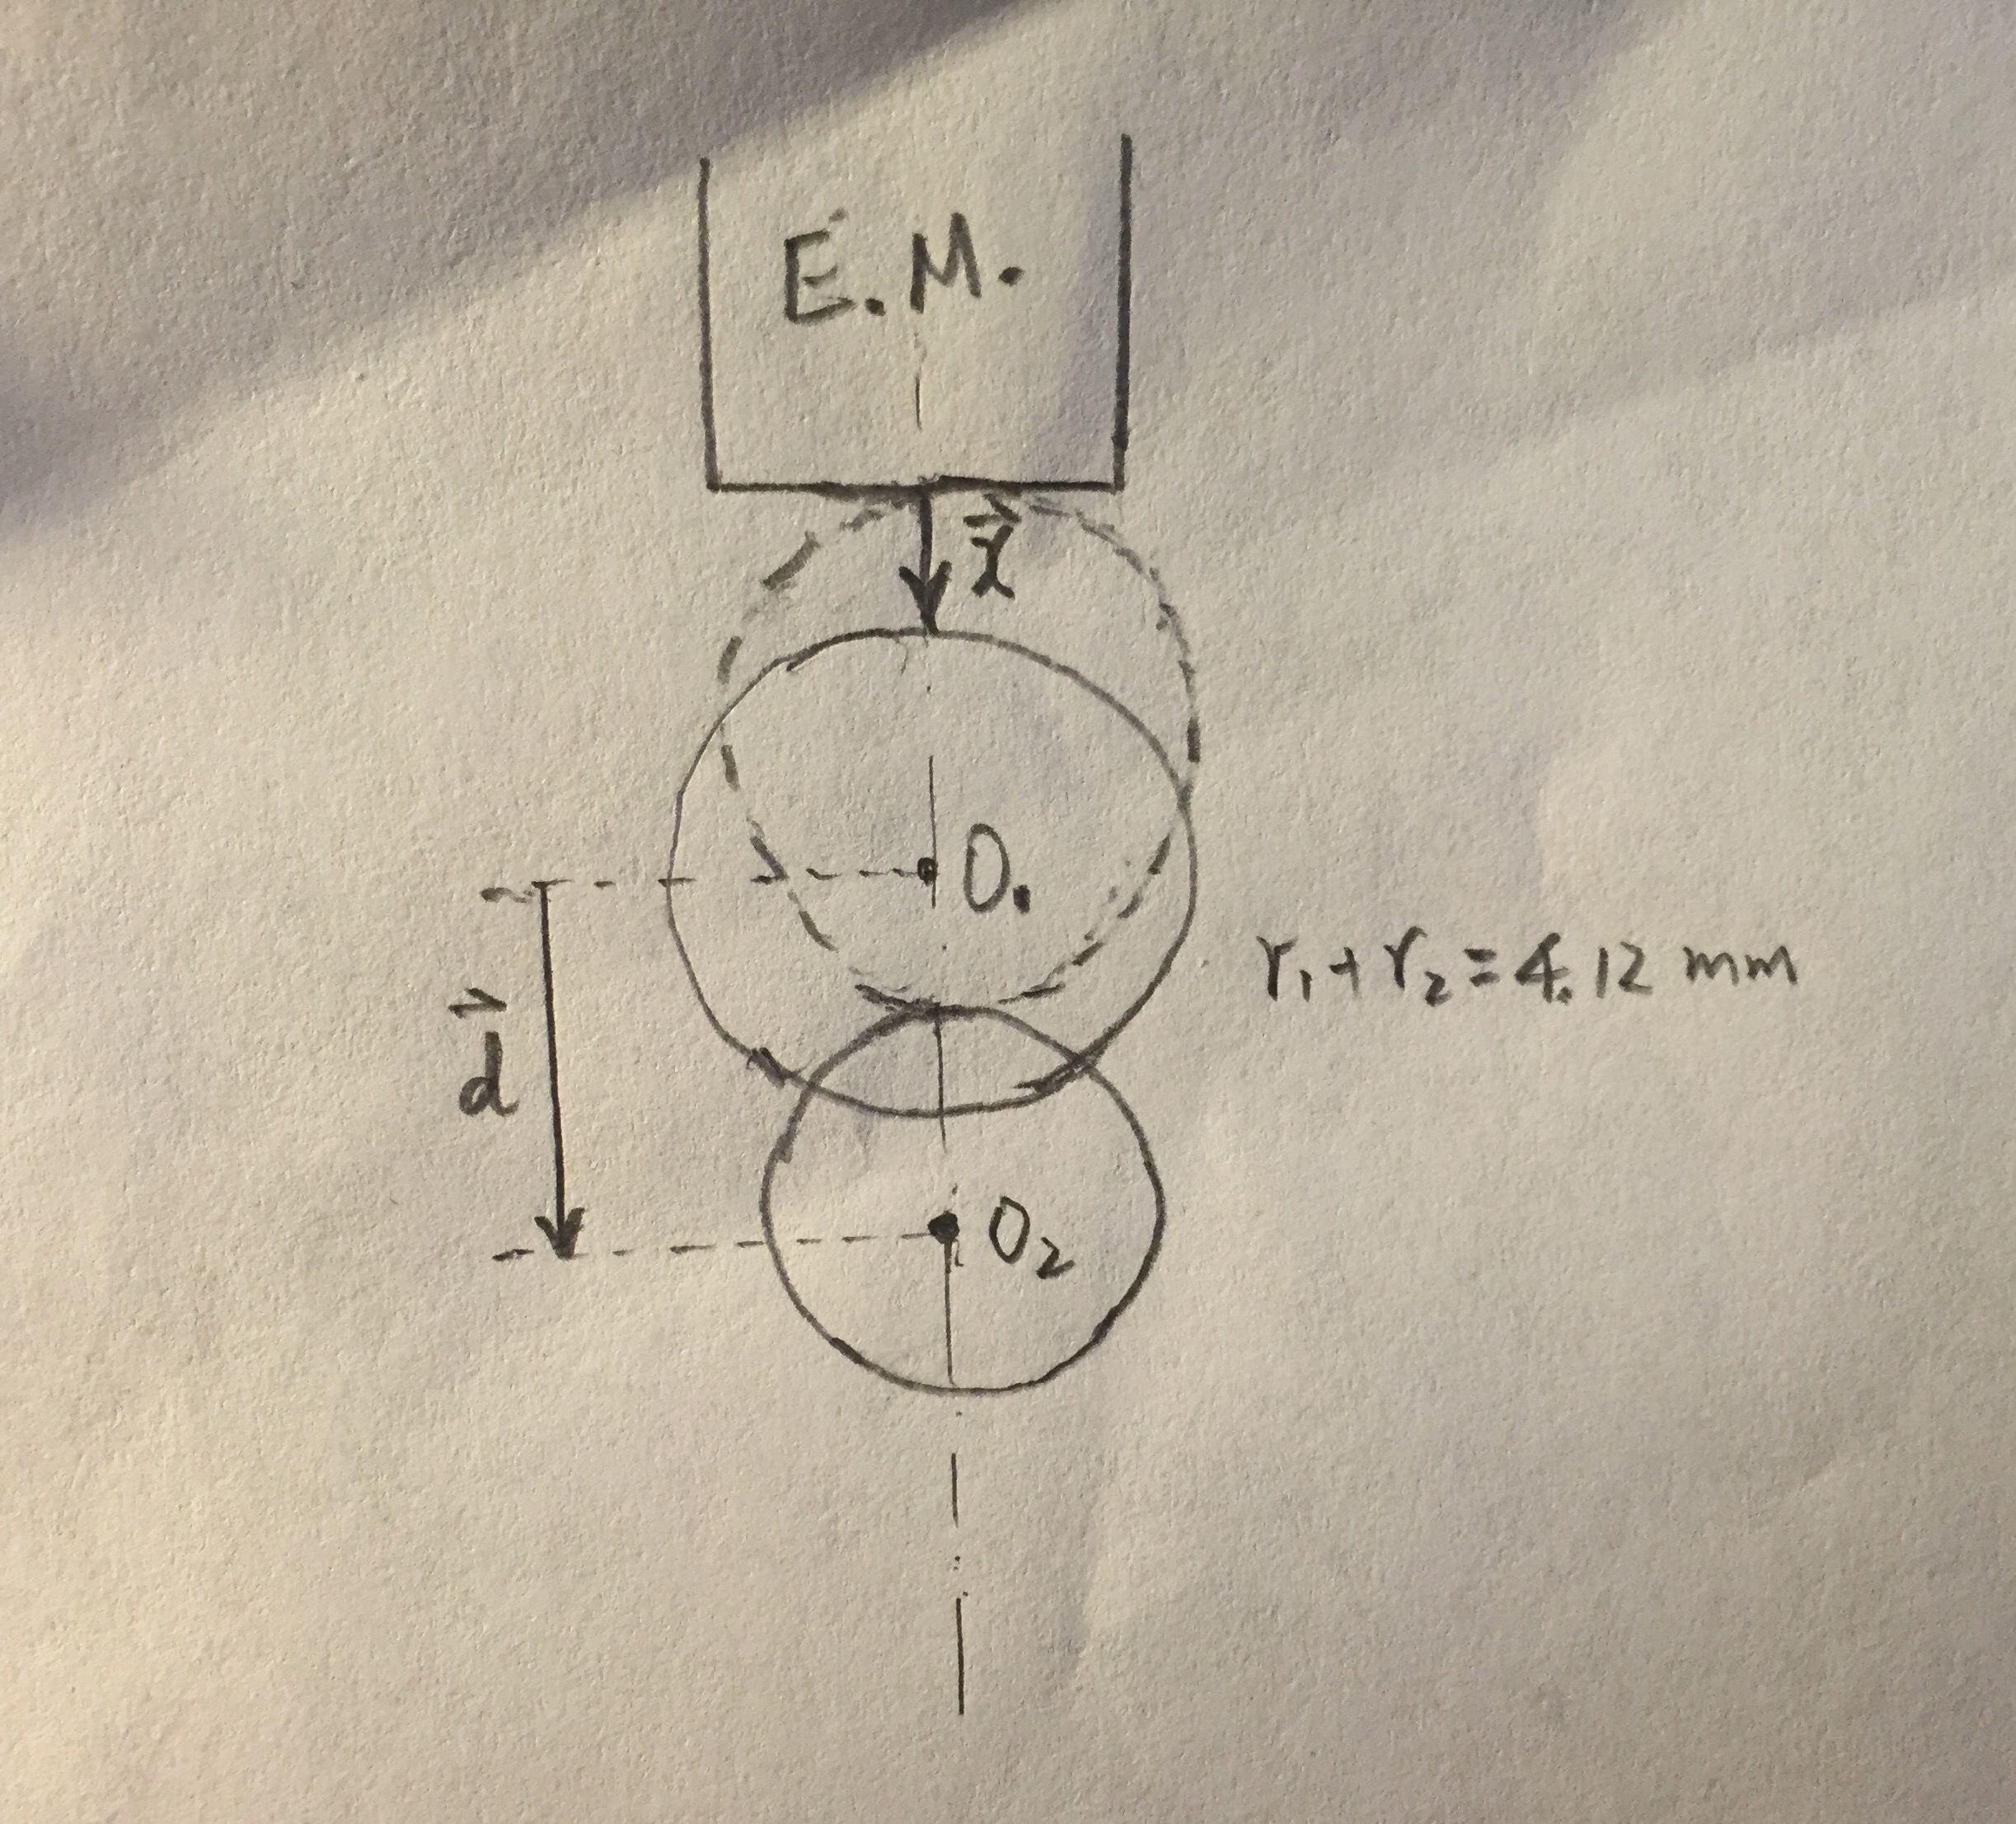 E.M.
x⃗
O₁
r₁+r₂=4.12 mm
d⃗
O₂